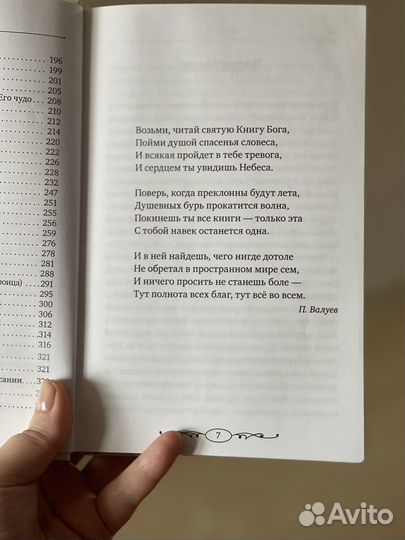 196
199
201
205
Его чудо 208
210
212
214
220
222
228
232
247
251
255
256
259
276
278
281
288
роица) 291
295
300
306
312
314
316
321
321
сании
Возьми, читай святую Книгу Бога,
Пойми душой спасенья словеса,
И всякая пройдет в тебе тревога,
И сердцем ты увидишь Небеса.
Поверь, когда преклонны будут лета,
Душевных бурь прокатится волна,
Покинешь ты все книги — только эта
С тобой навек останется одна.
И в ней найдешь, чего нигде дотоле
Не обретал в пространном мире сем,
И ничего просить не станешь боле —
Тут полнота всех благ, тут всё во всем.
П. Валуев
7
Avito